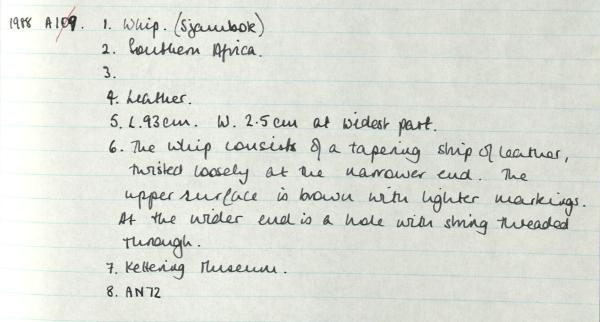 1988 A109. 1. Whip. (Sjambok)
2. Southern Africa.
3.
4. Leather.
5. L.93cm. W. 2.5cm at widest part.
6. The whip consists of a tapering strip of leather,
twisted loosely at the narrower end. The
upper surface is brown with lighter markings.
At the wider end is a hole with string threaded
through.
7. Kettering Museum.
8. AN72